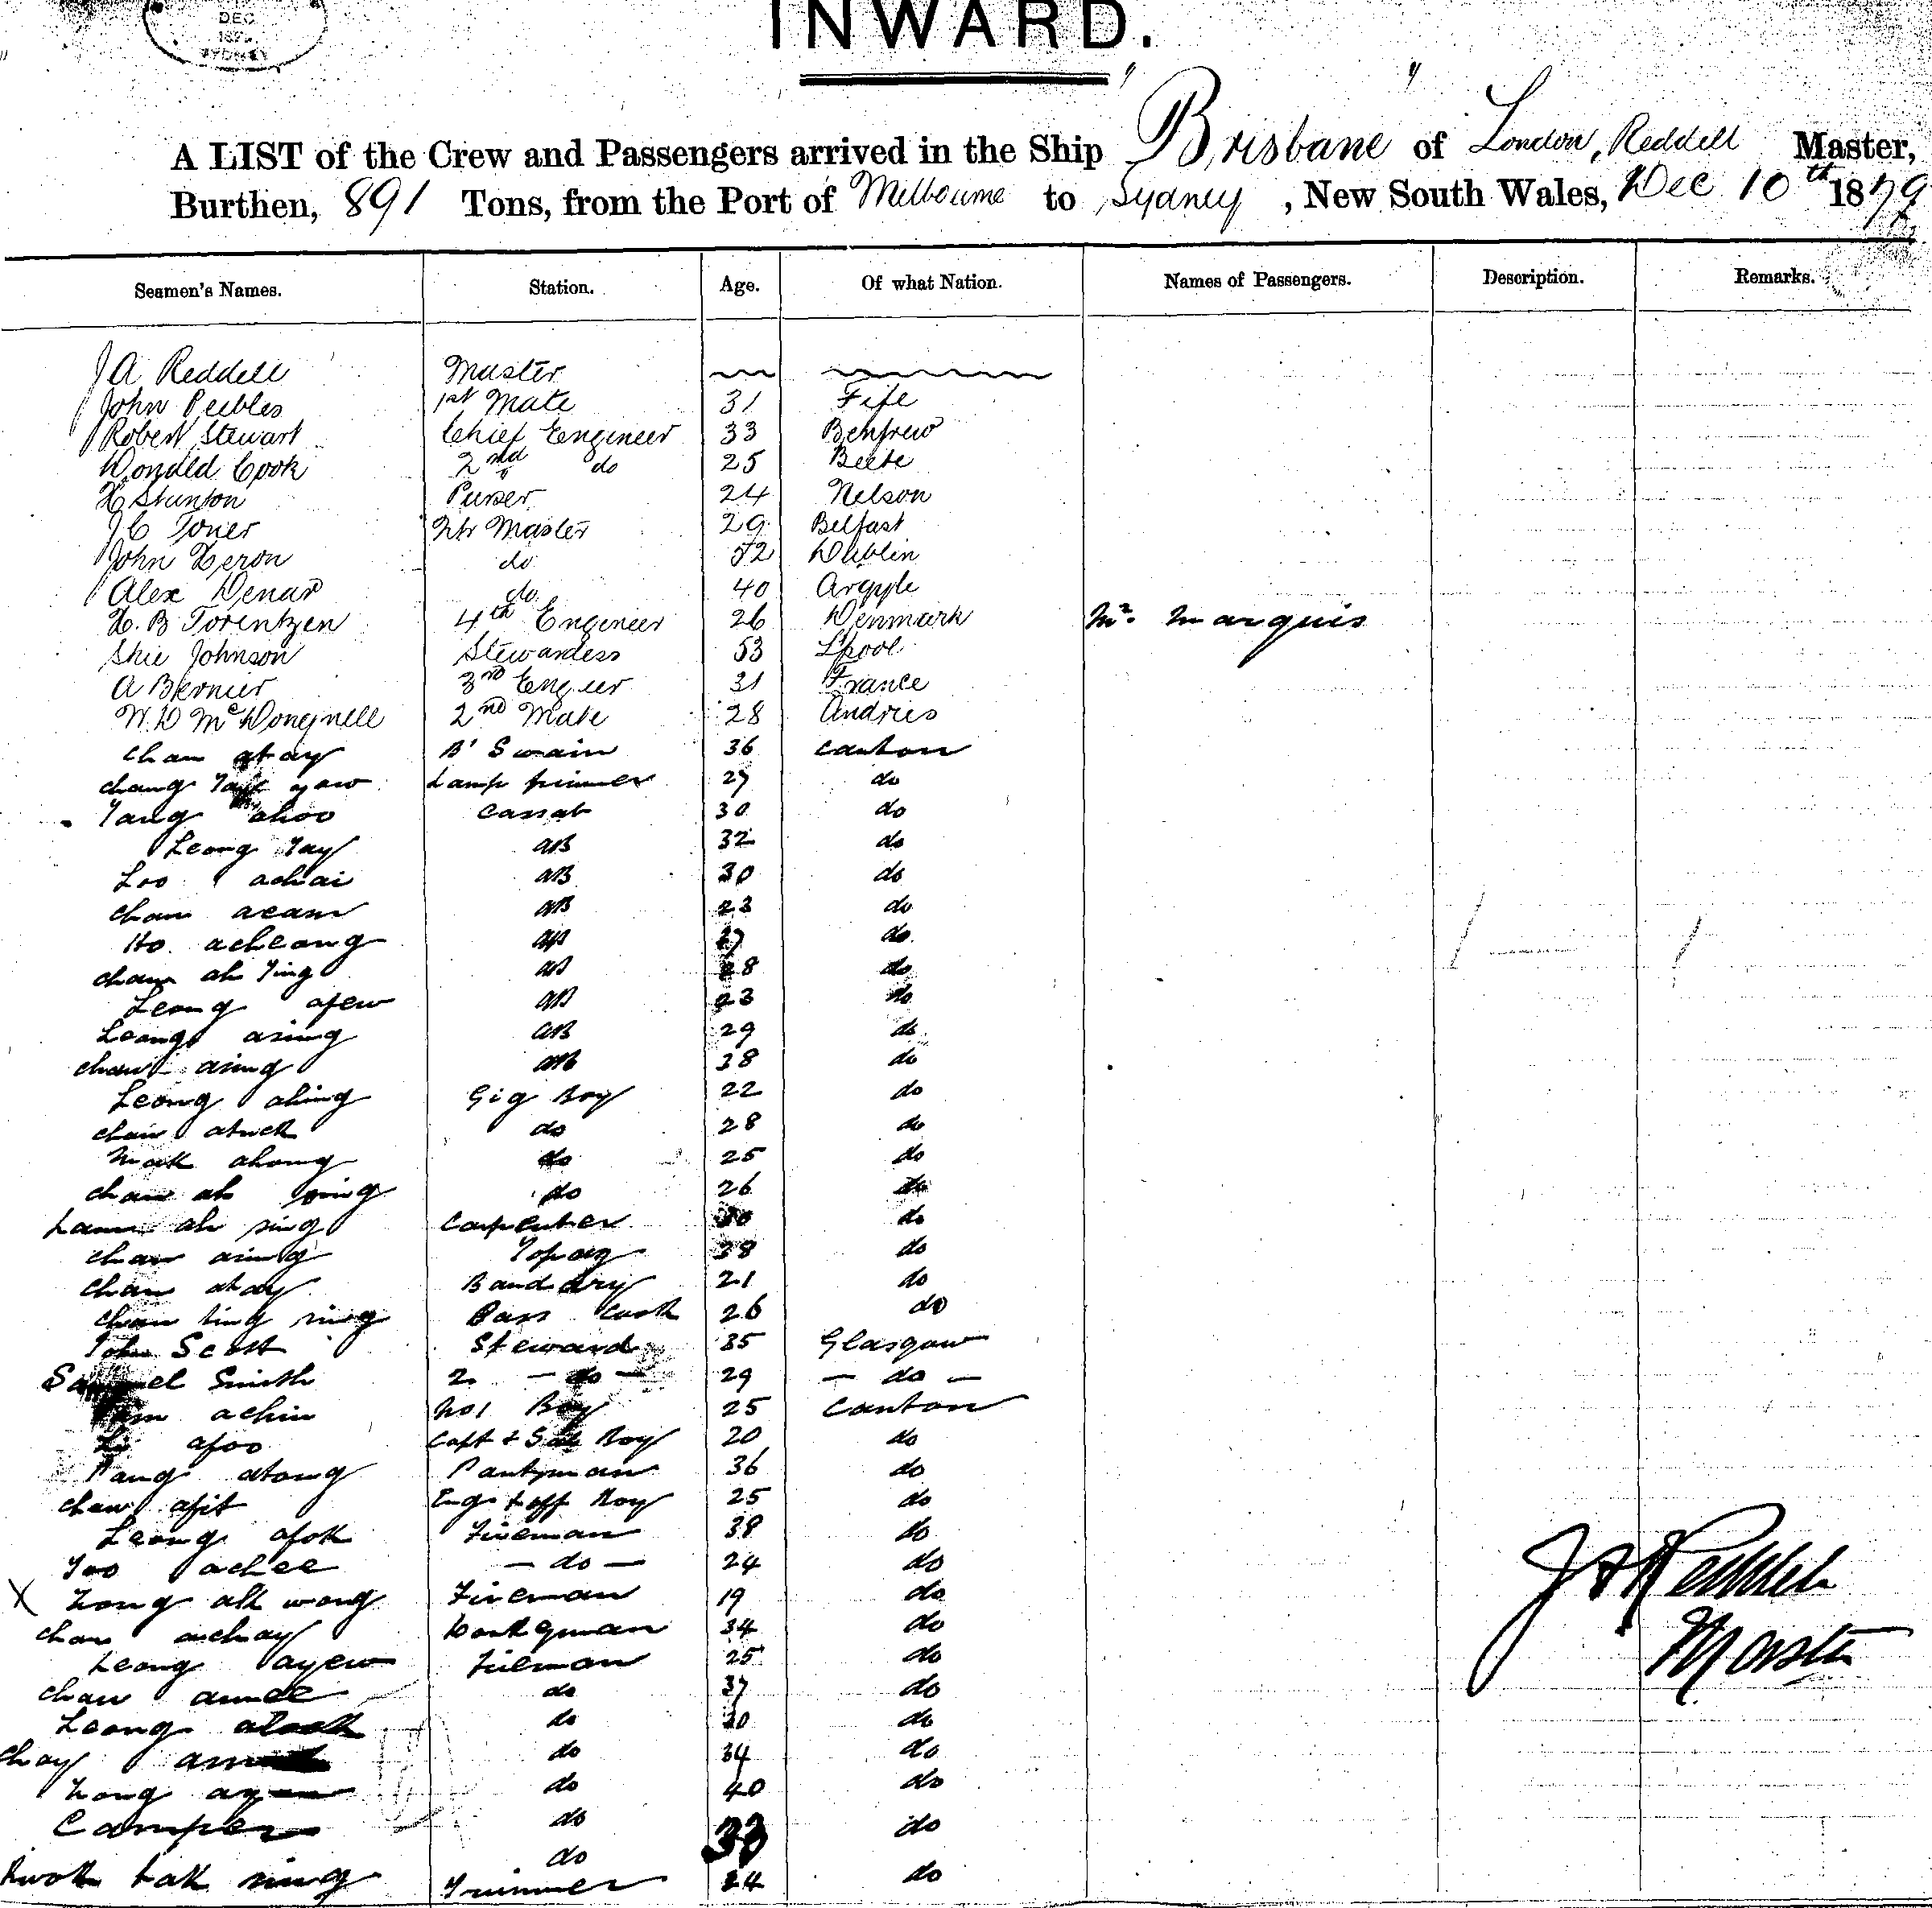 DEC
SYDNEY
INWARD.
A LIST of the Crew and Passengers arrived in the Ship "Brisbane" of London, Reddell Master,
Burthen, 891 Tons, from the Port of Melbourne to Sydney, New South Wales, Dec 10th 1879
Seamen's Names. Station. Age. Of what Nation. Names of Passengers. Description. Remarks.
J A Reddell Master
John Peebles 1st Mate 31 Fife
Robert Stewart Chief Engineer 33 Renfrew
Donald Cook 2nd do 25
H Stunton Purser 24 Nelson
J C Toner Qtr Master 29 Belfast
John Heron do 52 Dublin
Alex Denar do 40 Argyle
H. B Torentzen 4th Engineer 26 Denmark Mr. Marquis
Johnson Stewardess 53 L'pool
A Bernier 3rd 31 France
W. D 2nd Mate 28 Andries
chan atay B'Swain 36 canton
chang yaw Lamp trimmer 27 do
Yang ahoo Cassab 30 do
Leong Yay AB 32 do
Loo achai AB 30 do
chan acam AB 23 do
Ho acheong AB do
chan ah Ying AB 28 do
Leong afew AB 23 do
Leong asing AB 29 do
chan asing AB 38 do
Leong ahing Gig Boy 22 do
chan atuck do 28 do
Mak ahong do 25 do
chan ah do 26 do
ah sing Carpenter 30 do
chan asing Topaz 38 do
chan atay Bandary 21 do
chan ting sing Pass Cook 26 do
John Scott Steward 35 Glasgow
Samuel Smith 2 - do - 29 - do -
achin No 1 Boy 25 Canton
apoo Capt & Boy 20 do
Pang atong Pantryman 36 do
chan afit Eng Boy 25 do
Leong afok Fireman 38 do
Yoo achee - do - 24 do
X ah wong Fireman 19 do
chan achay 34 do
Leong ayew Fireman 25 do
chan amee do 37 do
Leong do 30 do
chay do 34 do
do 40 do
Camper do 33 do
do
Kwok tak sing Trimmer 24 do
J A Reddell
Master